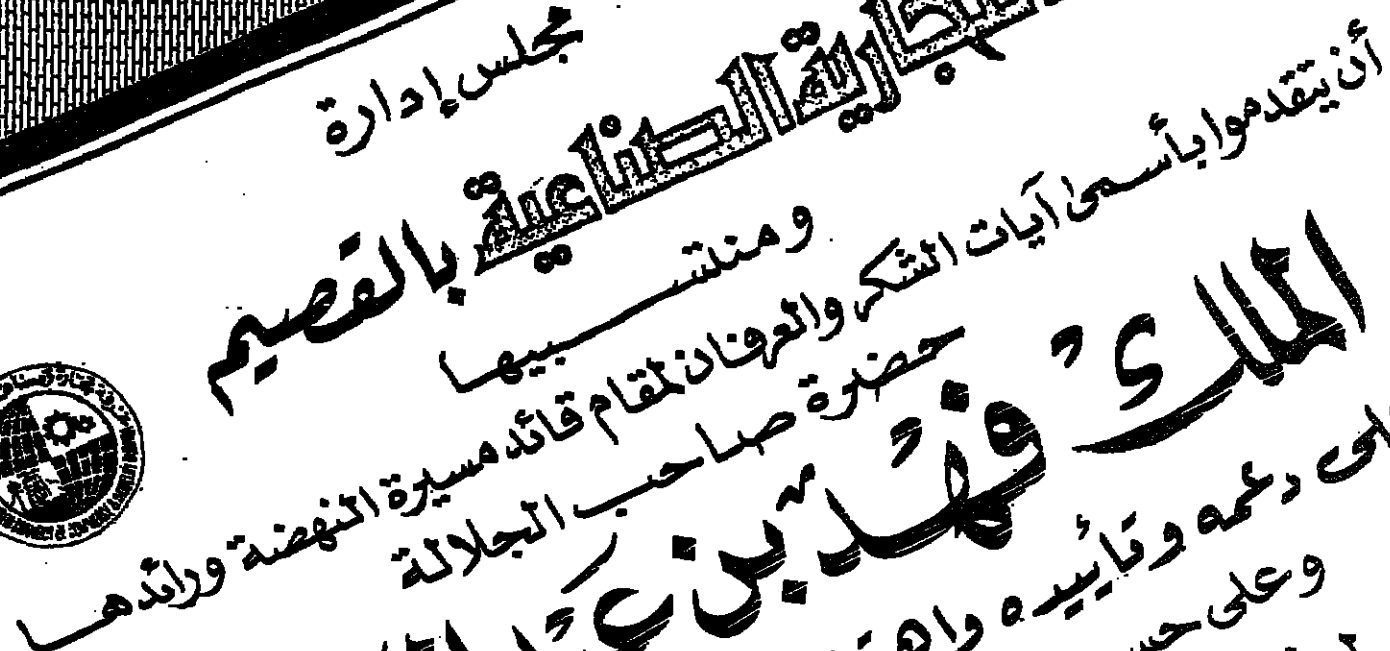 مجلس إدارة
التجارية الصناعية بالقصيم
ومنتسبيها
أن يتقدموا بأسمى آيات الشكر والعرفان لمقام قائد مسيرة النهضة ورائدها
حضرة صاحب الجلالة
الملك فهد بن
دعمه وتأييده
وعلى